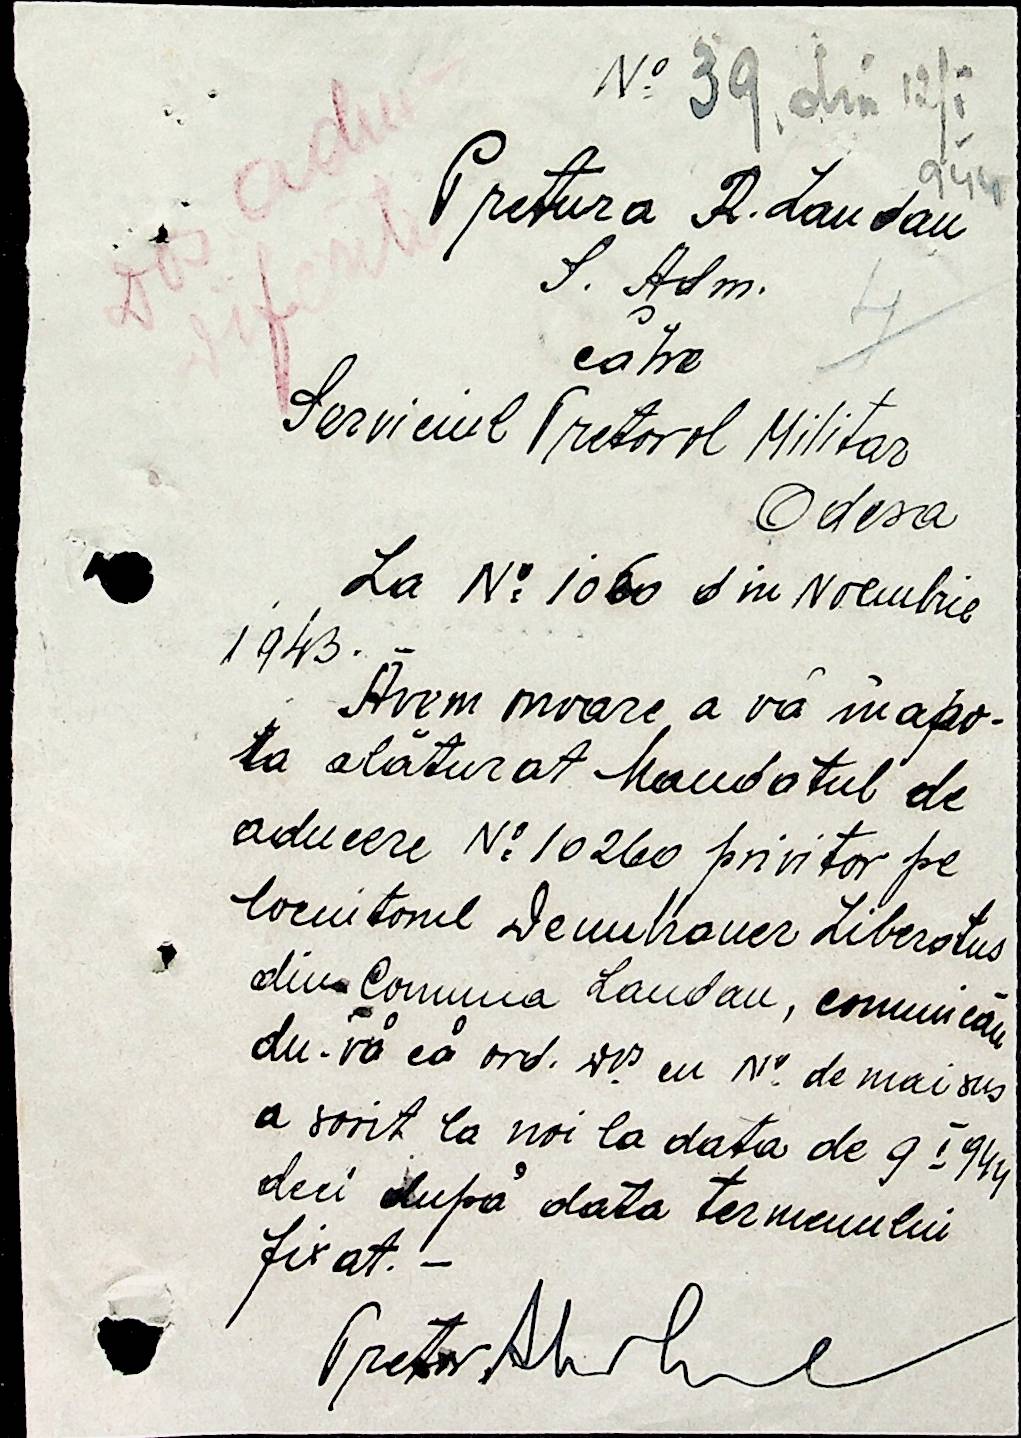 Nº 39, din 12/I
944
Pretura R. Landau
S. Adm.
către
Serviciul Pretoral Militar
Odesa
La Nº 1060 din Noembrie
1943.
Avem onoare a vă înapo-
ia alăturat Mandatul de
aducere Nº 10260 privitor pe
locuitorul Liberatus
din Comuna Landau, comunicân
du-vă că ord. Dvs cu Nº de mai sus
a sosit la noi la data de 9 I 944
deci după data termenului
fixat. —
Pretor,
4
dos